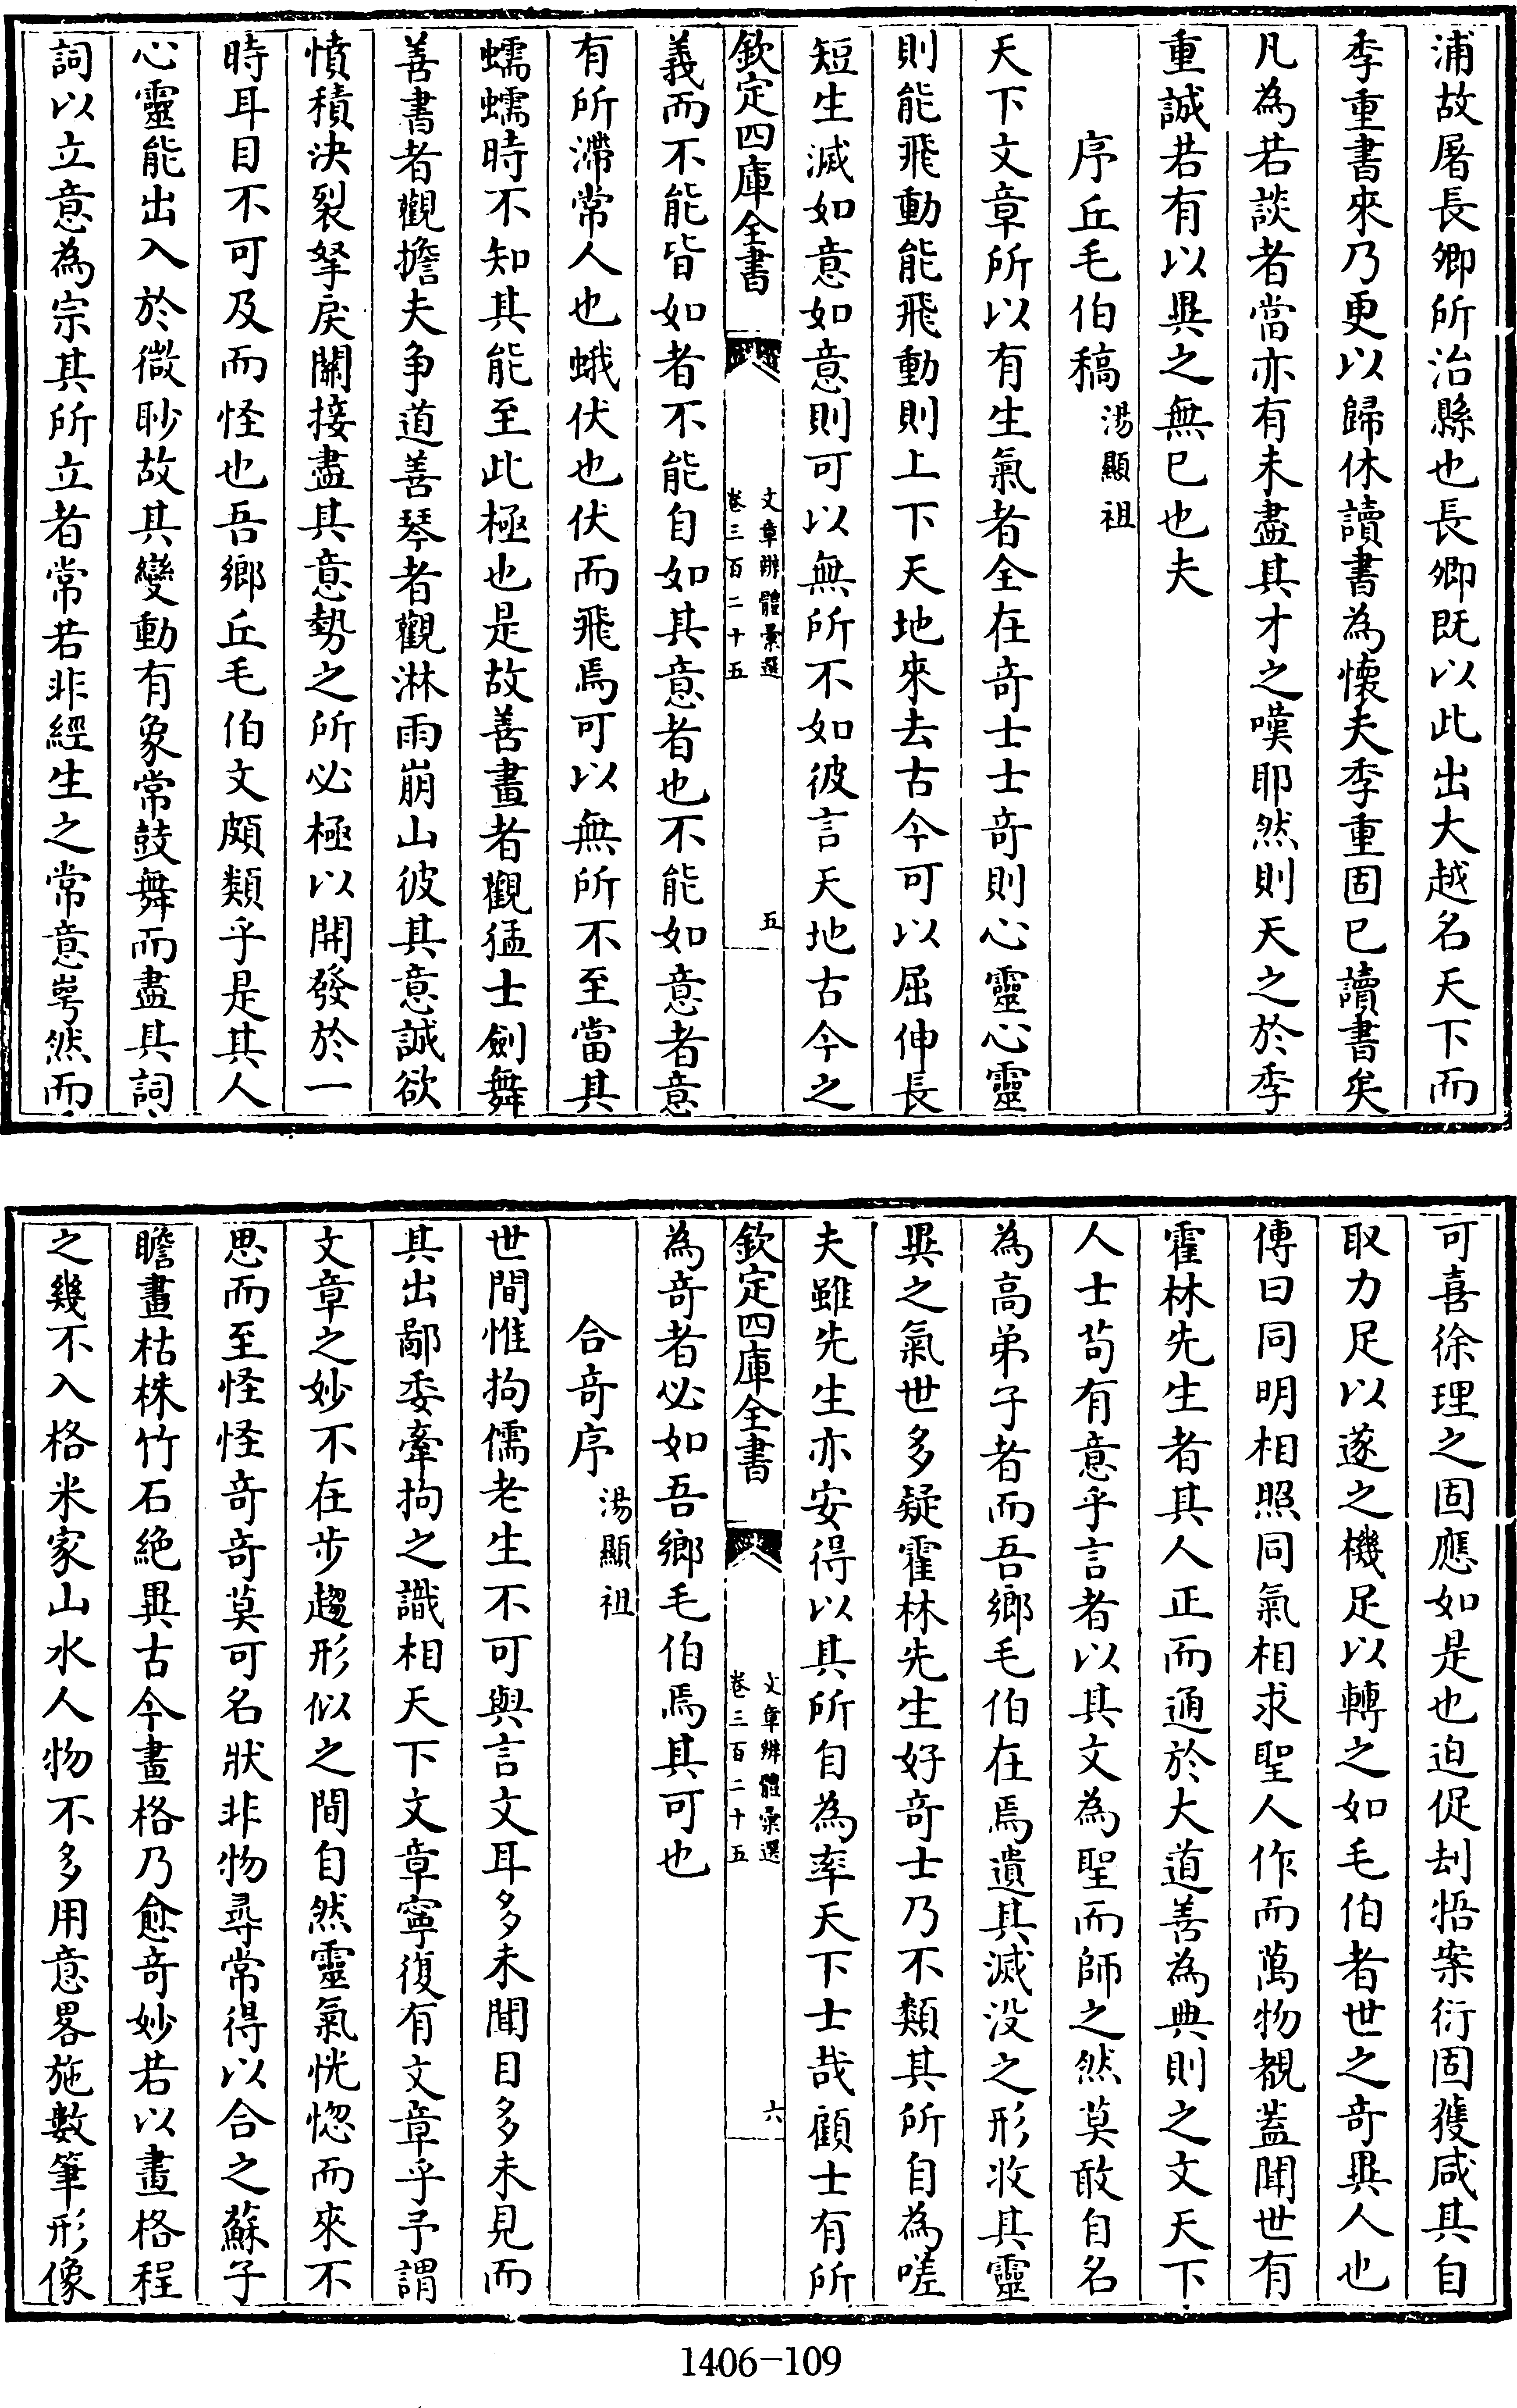 浦故屠長卿所治縣也長卿既以此出大越名天下而
季重書來乃更以歸休讀書為懷夫季重固已讀書矣
凡為若談者當亦有未盡其才之嘆耶然則天之於季
重誠若有以異之無已也夫
序丘毛伯稿 湯顯祖
天下文章所以有生氣者全在奇士士奇則心靈心靈
則能飛動能飛動則上下天地來去古今可以屈伸長
短生滅如意如意則可以無所不如彼言天地古今之
欽定四庫全書
文章辨體彙選
卷三百二十五
五
義而不能皆如者不能自如其意者也不能如意者意
有所滯常人也蛾伏也伏而飛焉可以無所不至當其
蠕蠕時不知其能至此極也是故善畫者觀猛士劍舞
善書者觀擔夫争道善琴者觀淋雨崩山彼其意誠欲
憤積決裂拏戾關接盡其意勢之所必極以開發於一
時耳目不可及而怪也吾鄉丘毛伯文頗類乎是其人
心靈能出入於微眇故其變動有象常鼓舞而盡其詞
詞以立意為宗其所立者常若非經生之常意㟧然而
可喜徐理之固應如是也迫促刦牾案衍固獲咸其自
取力足以遂之機足以轉之如毛伯者世之奇異人也
傳曰同明相照同氣相求聖人作而萬物覩蓋聞世有
霍林先生者其人正而通於大道善為典則之文天下
人士苟有意乎言者以其文為聖而師之然莫敢自名
為高弟子者而吾鄉毛伯在焉遺其滅没之形收其靈
異之氣世多疑霍林先生好奇士乃不類其所自為嗟
夫雖先生亦安得以其所自為率天下士哉顧士有所
欽定四庫全書
文章辨體彙選
卷三百二十五
六
為奇者必如吾鄉毛伯焉其可也
合奇序 湯顯祖
世間惟拘儒老生不可與言文耳多未聞目多未見而
其出鄙委牽拘之識相天下文章寧復有文章乎予謂
文章之妙不在步趨形似之間自然靈氣恍惚而來不
思而至怪怪奇奇莫可名狀非物尋常得以合之蘇子
瞻畫枯株竹石絶異古今畫格乃愈奇妙若以畫格程
之幾不入格米家山水人物不多用意畧施數筆形像
1406-109